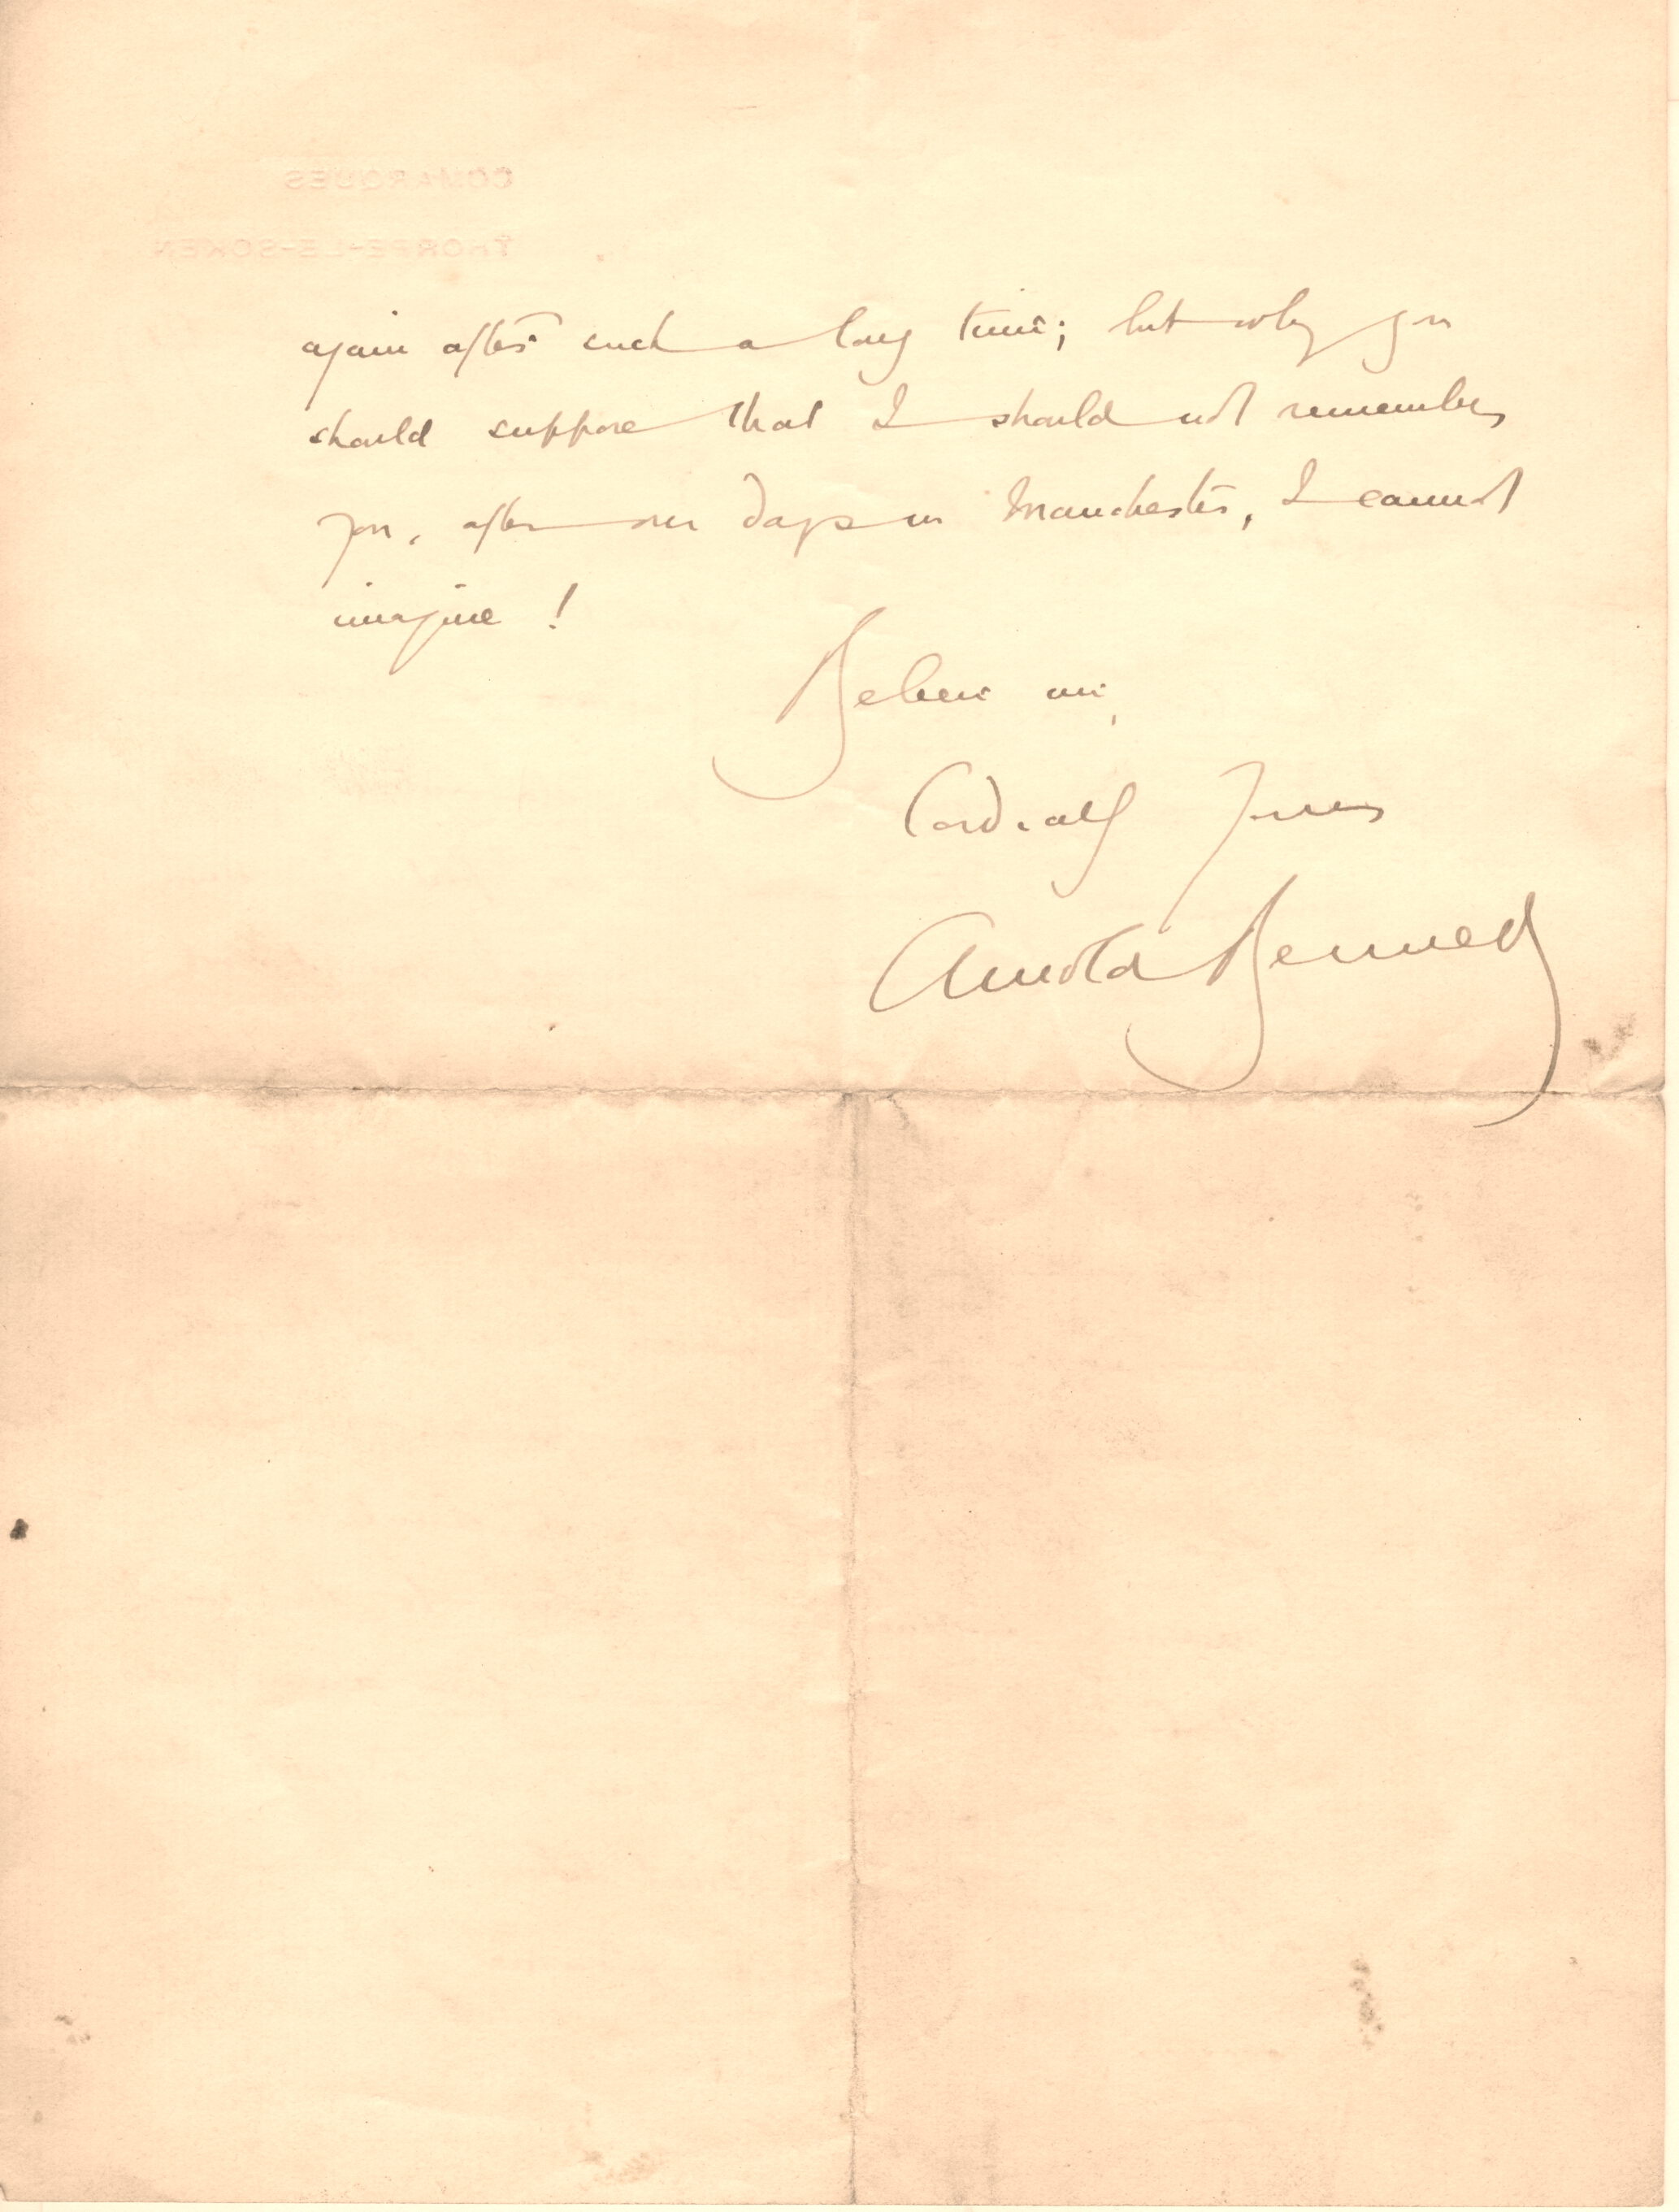 COMARQUES
THORPE-LE-SOKEN
again after such a long time; but why you
should suppose that I should not remember
you, after our days in Manchester, I cannot
imagine!
Believe me,
Cordially Yours
Arnold Bennett